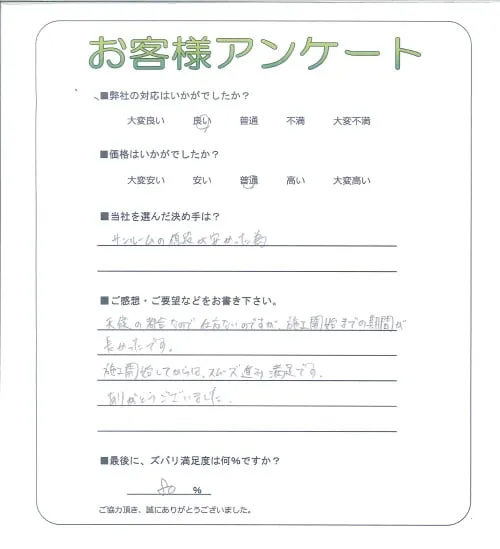 お客様アンケート
■弊社の対応はいかがでしたか？
大変良い 良い 普通 不満 大変不満
■価格はいかがでしたか？
大変安い 安い 普通 高い 大変高い
■当社を選んだ決め手は？
サンルームの値段が安かった為
■ご感想・ご要望などをお書き下さい。
天候の都合なので仕方ないのですが、施工開始までの期間が
長かったです。
施工開始してからは、スムーズ進み満足です。
ありがとうございました。
■最後に、ズバリ満足度は何%ですか？
80 %
ご協力頂き、誠にありがとうございました。